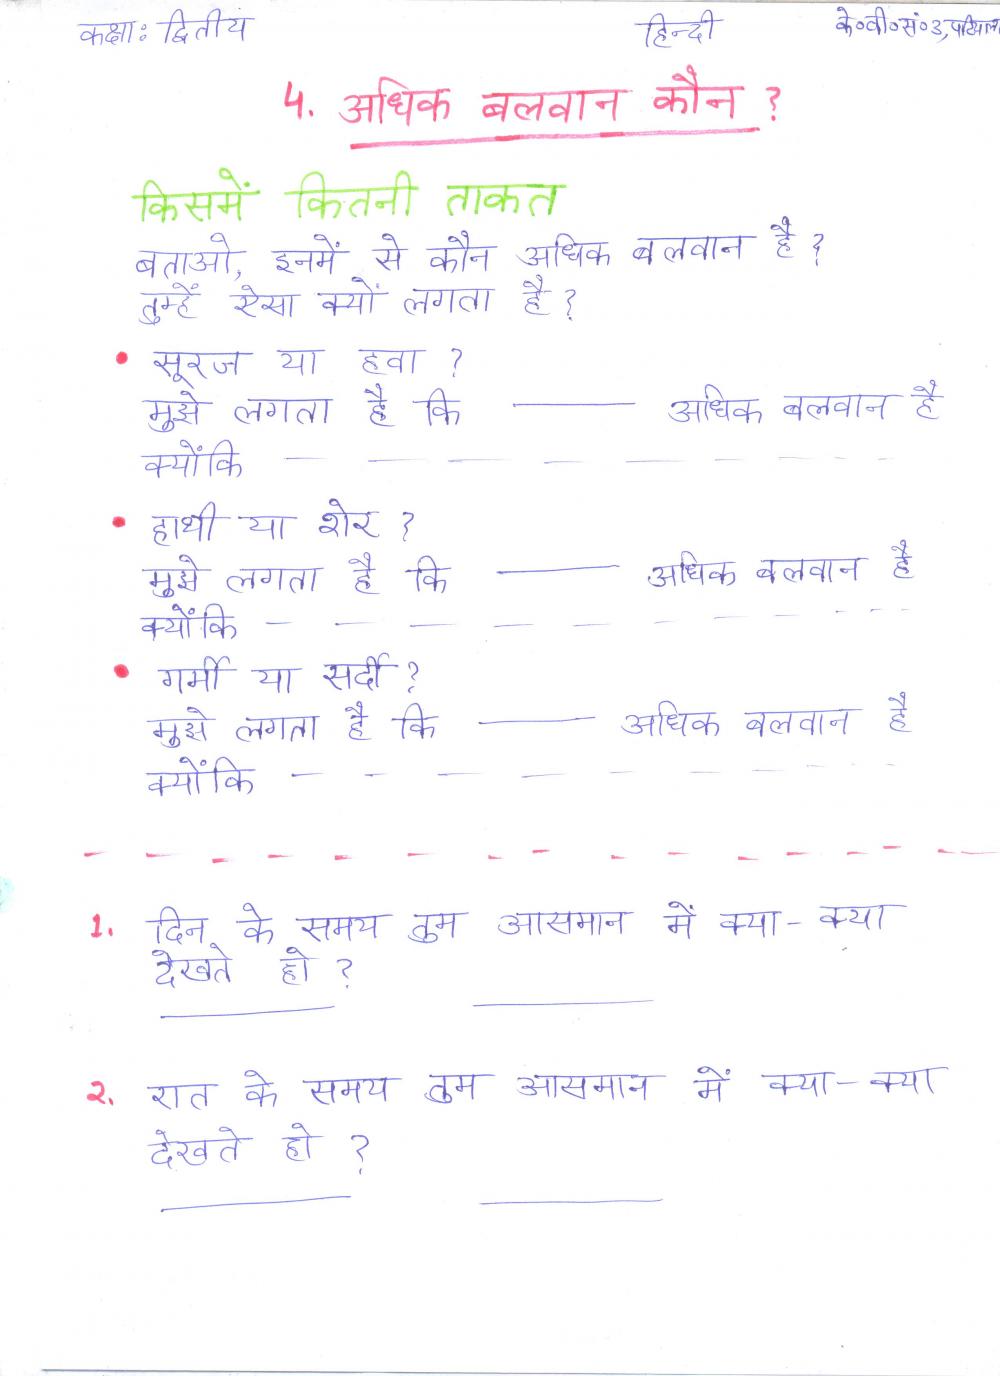 कक्षा: द्वितीय हिन्दी के०वी०सं०3,
4. अधिक बलवान कौन ?
किसमें कितनी ताकत
बताओ, इनमें से कौन अधिक बलवान है ?
तुम्हें ऐसा क्यों लगता है ?
• सूरज या हवा ?
मुझे लगता है कि ——— अधिक बलवान है
क्योंकि — — — — — — — —
• हाथी या शेर ?
मुझे लगता है कि ——— अधिक बलवान है
क्योंकि — — — — — — — —
• गर्मी या सर्दी ?
मुझे लगता है कि ——— अधिक बलवान है
क्योंकि — — — — — — — —
1. दिन के समय तुम आसमान में क्या - क्या
देखते हो ?
2. रात के समय तुम आसमान में क्या - क्या
देखते हो ?